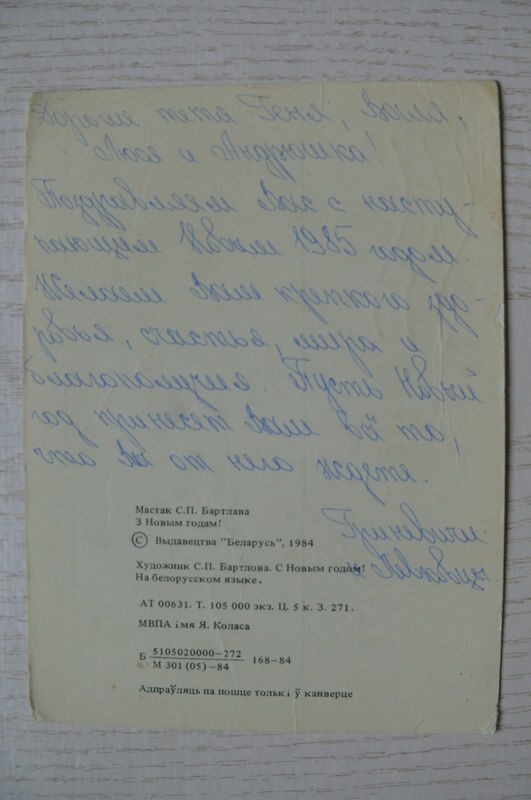 Дорогие тета Геня, Валя,
Люся и Андрюшка!
Поздравляем Вас с насту-
пающим Новым 1985 годом.
Желаем Вам крепкого здо-
ровья, счастья, мира и
благополучия. Пусть Новый
год принесёт Вам всё то,
что Вы от него ждете.
Гриневичи
и
Мастак С.П. Бартлава
З Новым годам!
© Выдавецтва "Беларусь", 1984
Художник С.П. Бартлова. С Новым годом!
На белорусском языке.
АТ 00631. Т. 105 000 экз. Ц. 5 к. З. 271.
МВПА імя Я. Коласа
Б 5105020000-272 168-84
М 301 (05)-84
Адпраўляць па пошце толькі ў канверце